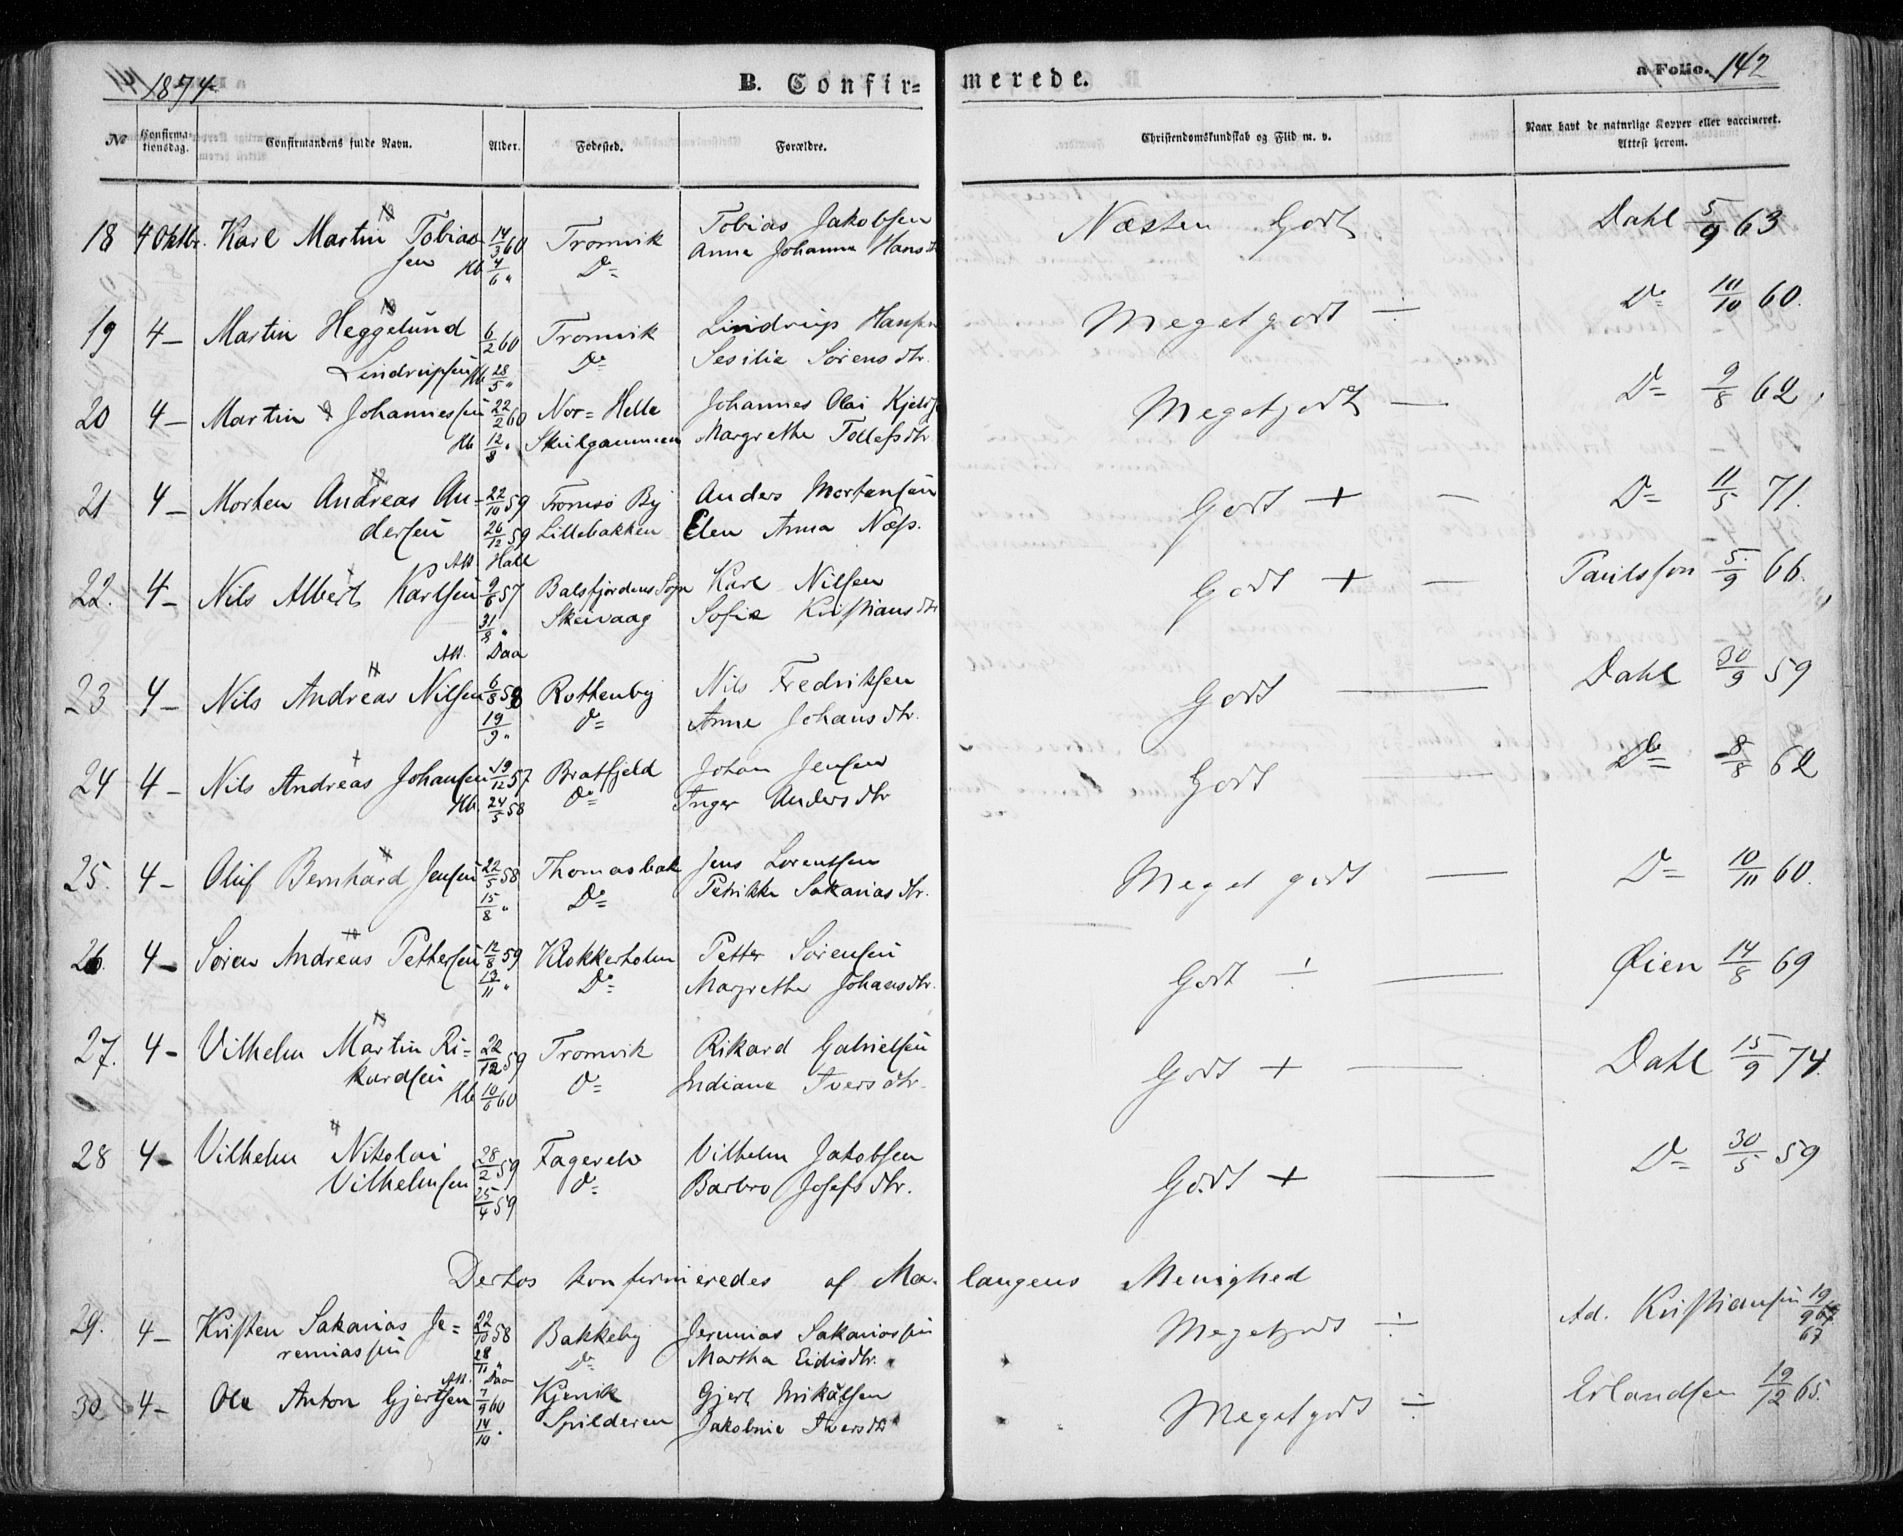 1874.
B. Confirmerede.
a Folio. 142
No
Confirmationsdag.
Confirmandens fulde Navn.
Alder.
Fødested.
Forældre.
Christendomskundskab og Flid m. v.
Naar havt de naturlige Kopper eller vaccineret.
Attest herom.
18 4 Oktbr. Karl Martin Tobias- 14/3 60 Tromvik Tobias Jakobsen Næsten Godt Dahl 5/9 63
sen Kb 4/6 " Do Anna Johanna Hansdtr
19 4 — Martin Heggelund 6/2 60 Tromvik Lindrup Hansen Megetgodt ÷ Do 10/10 60.
Lindrupsen Kb 28/5 " Do Sesilie Sørensdtr.
20 4 — Martin Johannessen 22/2 60 Nor-Helle Johannes Olai Kjelds Megetgodt — Do 9/8 62
Kb 12/8 " Skulgammen Margrethe Tollefsdtr
21 4 — Morten Andreas An- 22/10 59 Tromsø By Anders Mortensen Godt + — Do 11/5 71.
dersen 26/12 59 Lillebakken Elen Anna Næss.
Att. Hall
22. 4 — Nils Albert Karlsen 9/6 57 Balsfjordens Sogn Karl Nilsen Godt + — Paulsson 5/9 66.
31/8 " Skeivaag Sofie Kristiansdtr
Att. Daa
23 4 — Nils Andreas Nilsen 6/8 59 Rottenby Nils Fredriksen Godt — Dahl 30/9 59
19/9 " Do Anne Johansdtr.
24 4 — Nils Andreas Johansen 19/12 57 Bratfjeld Johan Jensen Godt — Do 8/8 62
Kb. 24/5 58 Do Inger Andersdtr
25. 4 — Oluf Bernhard Jensen 22/5 58 Thomasbak Jens Lorentsen Meget godt — Do 10/10 60.
15/8 " Do Petrikke Sakariasdtr.
26. 4 — Søren Andreas Pettersen 12/8 59 Klokkerholm Petter Sørensen Godt ÷ — Øien 14/8 69
13/11 " Do Margrethe Johansdtr.
27. 4 — Vilhelm Martin Ri- 22/12 59 Tromvik Rikard Gabrielsen Godt + — Dahl 15/9 74.
kardsen Kb 10/6 60 Do Indiane Iversdtr.
28 4 — Vilhelm Nikolai 28/2 59 Fagerelv Vilhelm Jakobsen Godt + — Do 30/5 59
Vilhelmsen 25/4 59 Do Barbro Josefsdtr.
Derhos konfirmeredes af Malangens Menighed
29. 4 — Kristen Sakarias Je- 22/10 58 Bakkeby Jeremias Sakariassen Megetgodt ÷ Ad. Kristiansen 19/9 67
remiassen 28/11 " Do Martha Eidisdtr.
Att. Daa
30. 4 — Ole Anton Gjertsen 7/9 60 Kjervik Gjert Mikalsen Megetgodt ÷ Erlandsen 19/12 65.
14/10 " Spilderen Jakobine Iversdtr